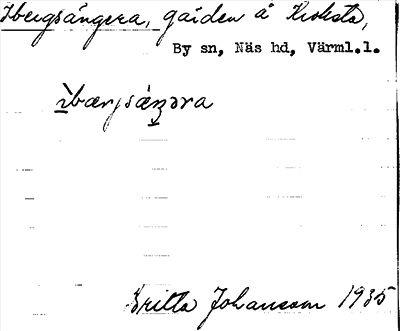 Ibergsängera, gården å Kroksta,
By sn, Näs hd, Värml.l.
ìbærjsäŋəra
Britta Johansson 1935